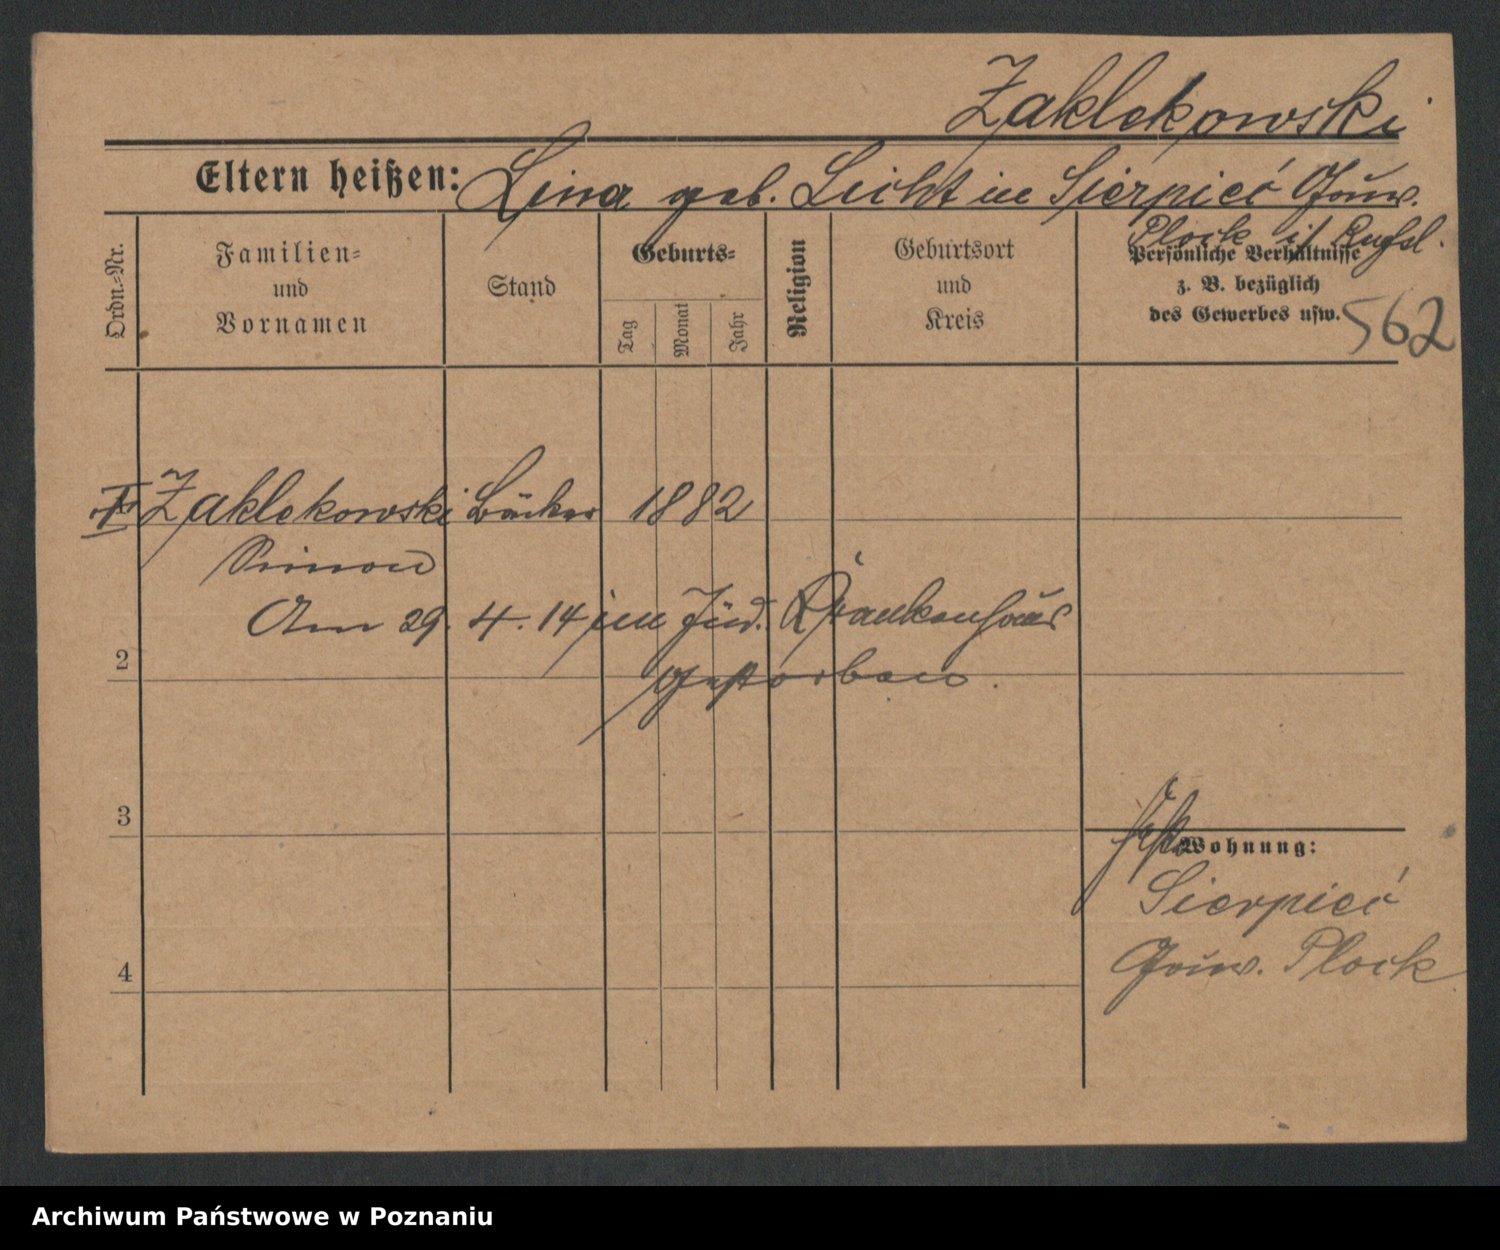 Zaklekowski
Eltern heißen: Lina geb. Licht in Sierpieć Gouv.
Plock i/ Rußl.
Ordn.-Nr.
Familien-
und
Vornamen
Stand
Geburts-
Tag
Monat
Jahr
Religion
Geburtsort
und
Kreis
Persönliche Verhältnisse
z. B. bezüglich
des Gewerbes usw.
562
Zaklekowski Bäcker 1882
Simon
Am 29. 4. 14 im Jüd. Krankenhaus
2
gestorben.
3
Wohnung:
Sierpieć
4
Gouv. Plock
Archiwum Państwowe w Poznaniu